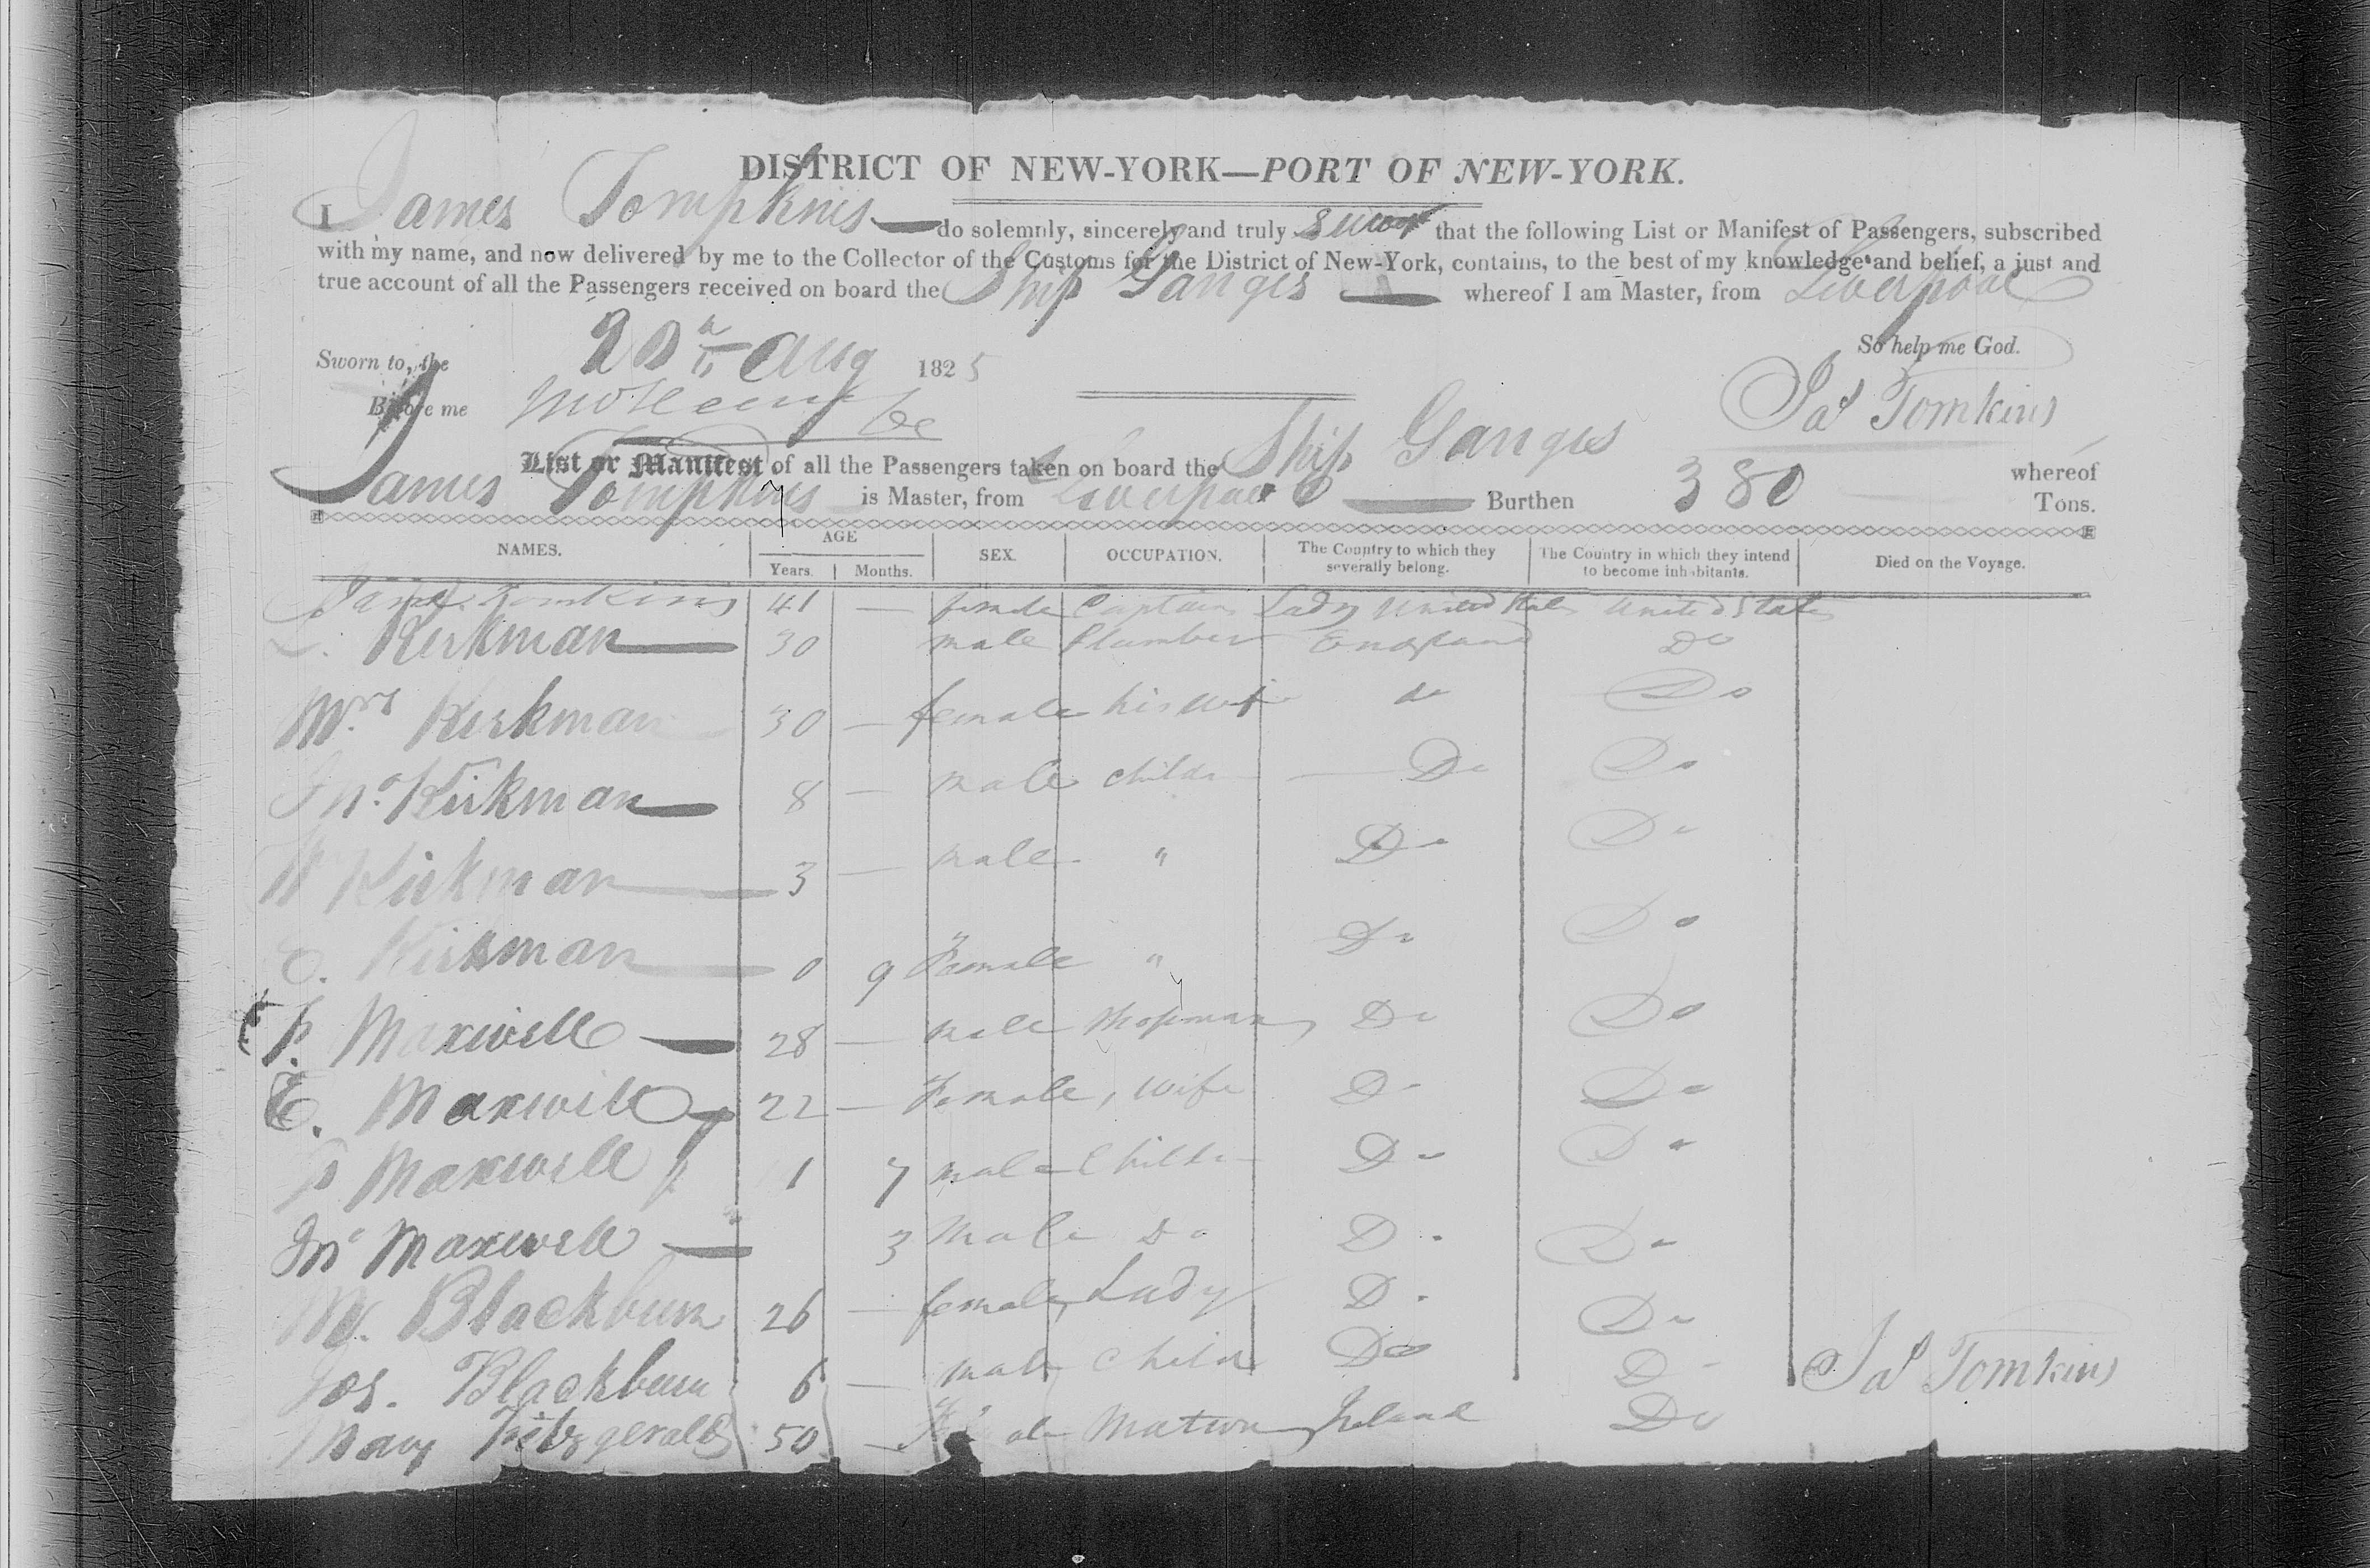 DISTRICT OF NEW-YORK—PORT OF NEW-YORK.
I James Tompkins do solemnly, sincerely and truly swear that the following List or Manifest of Passengers, subscribed
with my name, and now delivered by me to the Collector of the Customs for the District of New-York, contains, to the best of my knowledge and belief, a just and
true account of all the Passengers received on board the Ship Ganges whereof I am Master, from Liverpool
So help me God.
Sworn to, the 20th Aug 1825
Before me
Jas Tomkins
List or Manifest of all the Passengers taken on board the Ship Ganges whereof
James Tompkins is Master, from Liverpool Burthen 380 Tons.
NAMES. AGE Years. Months. SEX. OCCUPATION. The Country to which they severally belong. The Country in which they intend to become inhabitants. Died on the Voyage.
Jane Tomkins 41 — female Captains Lady United States United States
Kirkman 30 male Plumber England Do
Mrs Kirkman 30 — female his wife do Do
Jno. Kirkman 8 — male child Do Do
W Kirkman 3 — male " Do Do
E. Kirkman 0 9 Female " Do Do
P. Maxwell 28 — male Do Do
E. Maxwell 22 — Female, wife Do Do
P Maxwell 1 7 male Child Do Do
Jno Maxwell 3 Male Do Do Do
M. Blackburn 26 — female Lady Do Do
Jos. Blackburn 6 — male Child Do Do
Jas Tomkins
Mary Fitzgerald 50 — Matron Ireland Do